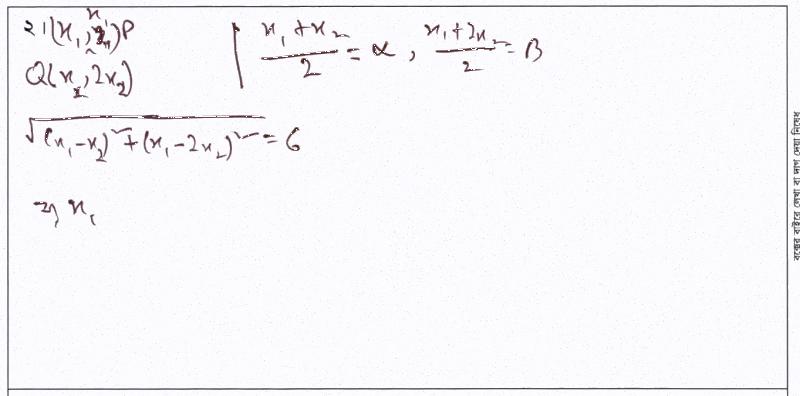 ২। (x₁, x₁)P
Q(x₂, 2x₂)
(x₁ + x₂)/2 = α, (x₁ + 2x₂)/2 = β
√((x₁ - x₂)² + (x₁ - 2x₂)²) = 6
⇒ x₁
বক্সের বাইরে লেখা বা দাগ দেয়া নিষেধ